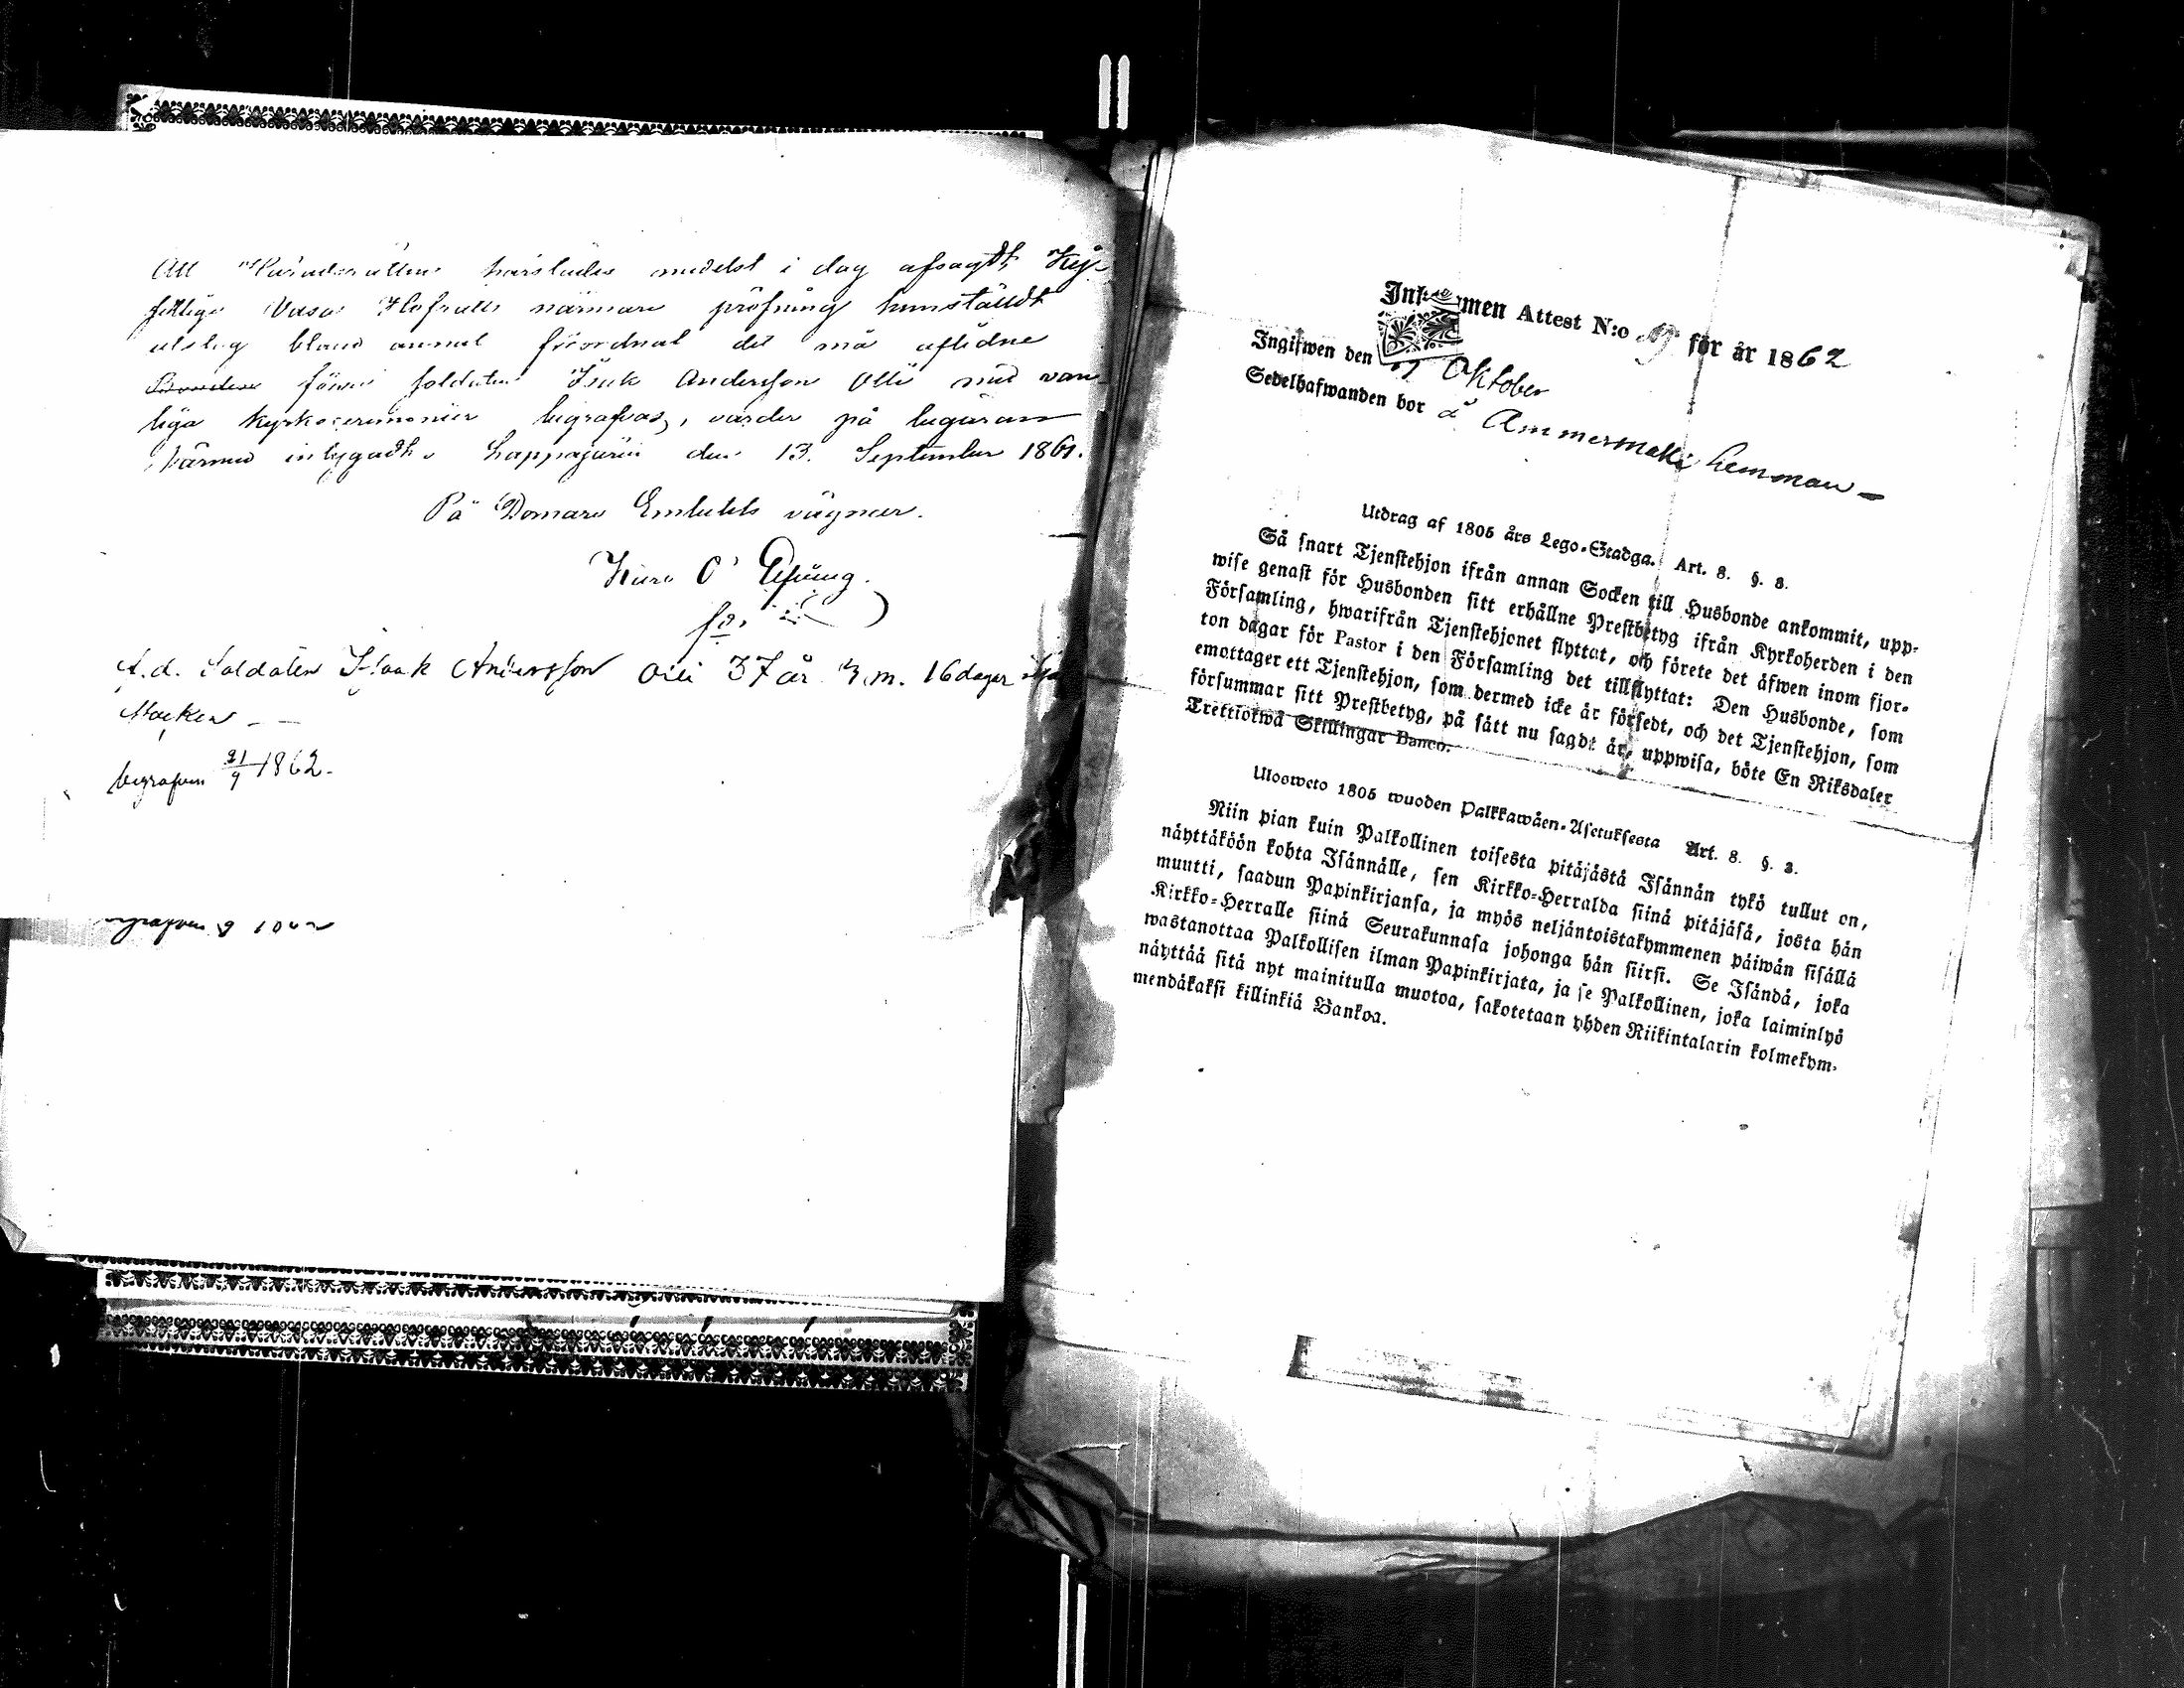 Att Häradsrätten härstädes medelst i dag afsagdt, Kejs-
serlige Vasa Hofrätts närmare pröfning hemställdt
utslag bland annat förordnat det må aflidne
Bonden förra soldaten Isak Andersson Olli med van-
liga kyrkoceremonier begrafvas, varder på begäran
härmed intygadt. Lappajärvi den 13. September 1861.
På Domare Embetets vägnar.
f.d. Soldaten Isaak Andersson Olli 37 år 3 m. 16 dagar
begrafven 21/9 1862.
men Attest N:o för år 1862
Ingifwen den Oktober
Sedelhafwanden bor å Ammermäki hemman
Utdrag af 1805 års Lego-Stadga. Art. 8. §. 3.
Så snart Tjenstehjon ifrån annan Socken till Husbonde ankommit, upp-
wise genast för Husbonden sitt erhållne Prestbetyg ifrån Kyrkoherden i den
Församling, hwarifrån Tjenstehjonet flyttat, och förete det äfwen inom fjor-
ton dagar för Pastor i den Församling det tillflyttat: Den Husbonde, som
emottager ett Tjenstehjon, som dermed icke är försedt, och det Tjenstehjon, som
försummar sitt Prestbetyg, på sätt nu sagdt är, uppwisa, böte En Riksdaler
Trettiotwå Skillingar Banco.
Ulosweto 1805 wuoden Palkkawäen-Asetuksesta Art. 8. §. 3.
Niin pian kuin Palkollinen toisesta pitäjästä Isännän tykö tullut on,
näyttäköön kohta Isännälle, sen Kirkko-Herralda siinä pitäjäsä, josta hän
muutti, saadun Papinkirjansa, ja myös neljäntoistakymmenen päiwän sisällä
Kirkko-Herralle siinä Seurakunnasa johonga hän siirsi. Se Isändä, joka
wastanottaa Palkollisen ilman Papinkirjata, ja se Palkollinen, joka laiminlyö
näyttää sitä nyt mainitulla muotoa, sakotetaan yhden Riikintalarin kolmekym-
mendäkaksi killinkiä Bankoa.